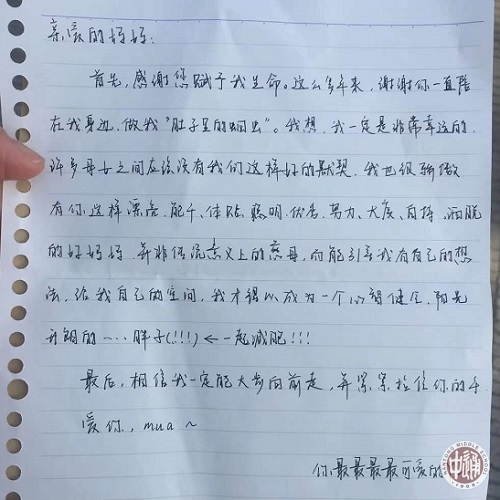 亲爱的妈妈:
首先,感谢您赋予我生命。这么多年来,谢谢你一直陪
在我身边,做我"肚子里的蛔虫"。我想,我一定是非常幸运的,
许多母女之间应该没有我们这样好的默契,我也很骄傲
有你这样漂亮、能干、体贴、聪明、优秀、努力、大度、自持、洒脱
的好妈妈,并非俗流意义上的慈母,而能引导我有自己的想
法,给我自己的空间,我才得以成为一个心智健全、阳光
开朗的……胖子(!!!)←一起减肥!!!
最后,相信我一定能大步向前走,并紧紧拉住你的手
爱你,mua~
你最最最最可爱的